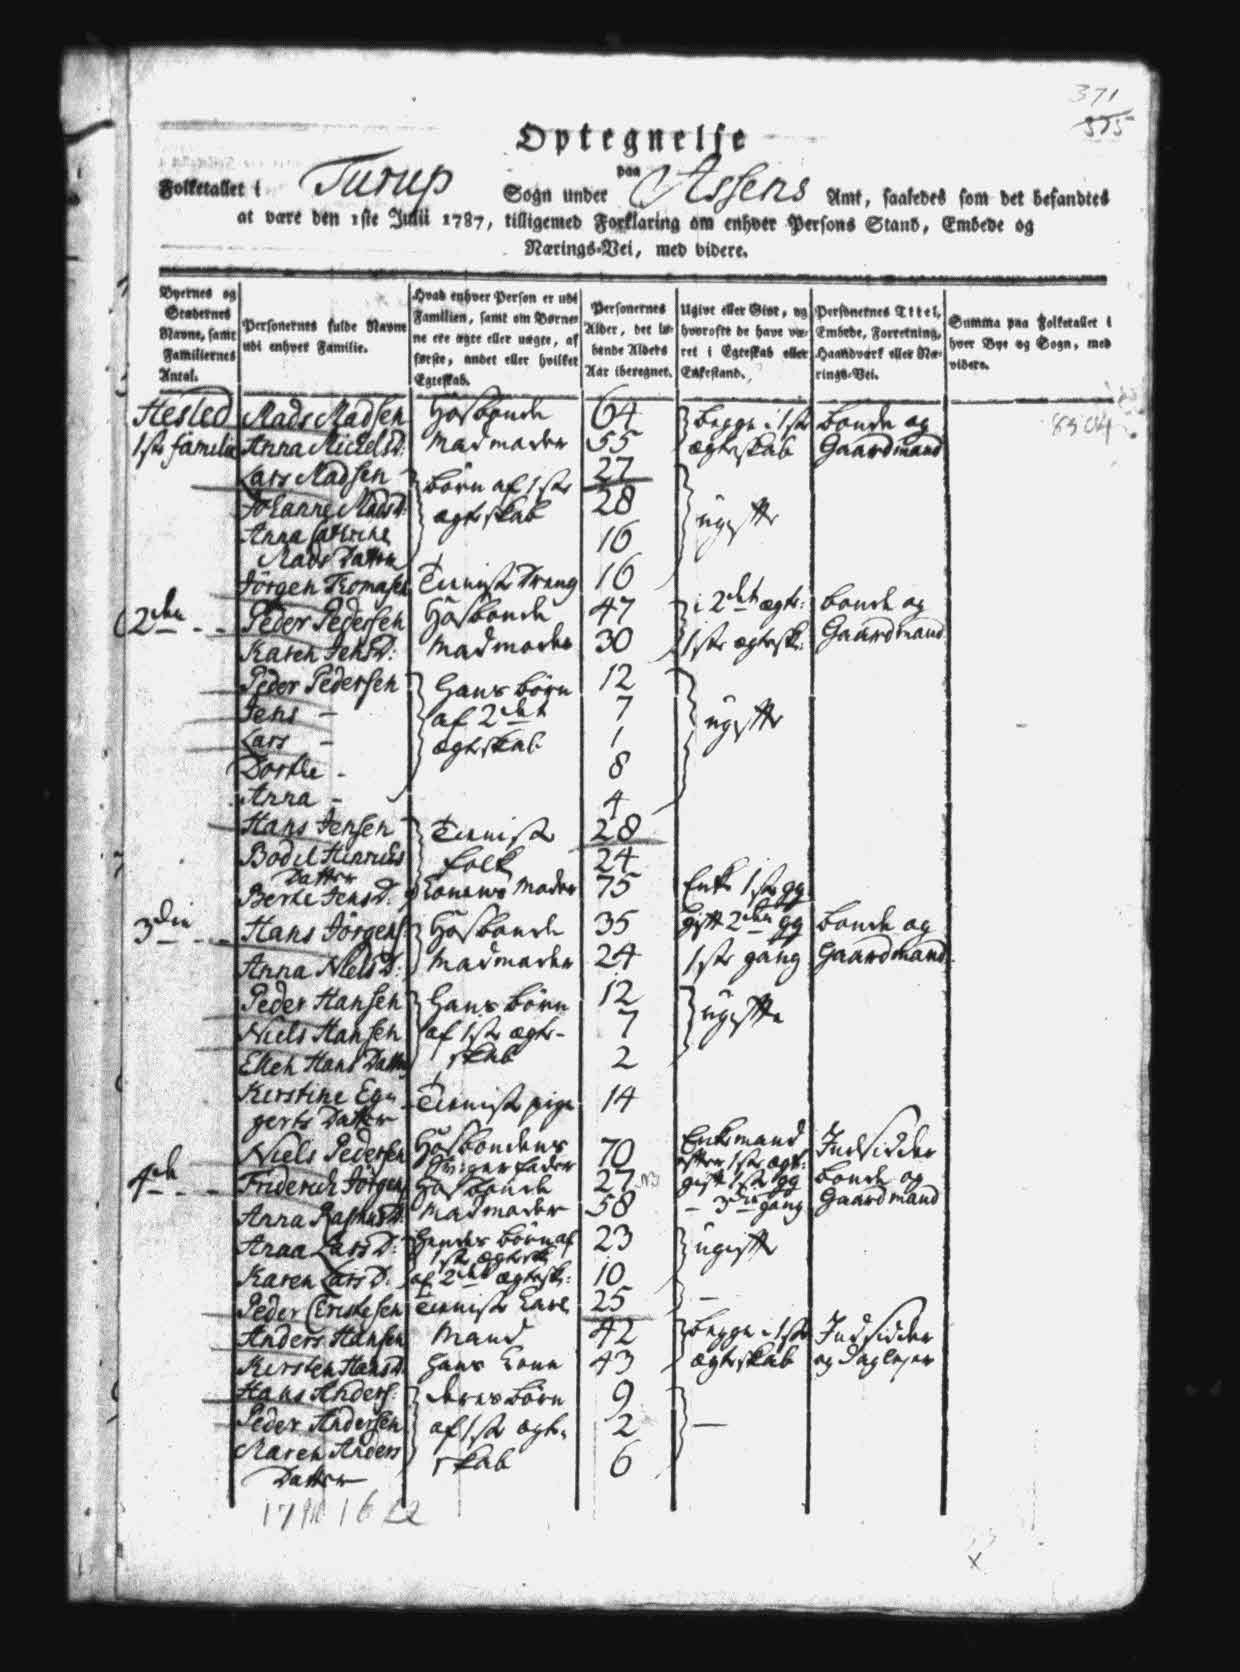 371
375
Optegnelse
paa
Folketallet i Turup Sogn under Assens Amt, saaledes som det befandtes
at være den 1ste Julii 1787, tilligemed Forklaring om enhver Persons Stand, Embede og
Nærings-Vei, med videre.
Byernes og Stædernes Navne, samt Familiernes Antal.
Personernes fulde Navne udi enhver Familie.
Hvad enhver Person er udi Familien, samt om Børnene ere ægte eller uægte, af første, andet eller hvilket Egteskab.
Personernes Alder, det løbende Alders Aar iberegnet.
Ugivt eller Givt, og hvorofte de have været i Egteskab eller Enkestand.
Personernes Titel, Embede, Forretning, Haandværk eller Nærings-Vei.
Summa paa Folketallet i hver Bye og Sogn, med videre.
Hested Mads Madsen Hosbonde 64 begge i 1ste bonde og
1ste familie Anna Mickelsd: Madmoder 55 ægteskab Gaardmand
Lars Madsen børn af 1ste 27
Johanne Madsd: ægteskab 28 ugifte
Anna Catrine 16
Mads Datter
Jörgen Thomasen Tieniste Dreng 16
2den Peder Pedersen Hosbonde 47 i 2det ægte: bonde og
Karen Jensd: Madmoder 30 1ste ægtesk: Gaardmand
Peder Pedersen hans børn 12
Jens - af 2det 7 ugifte
Lars - ægteskab 1
Dorthe - 8
Anna - 4
Hans Jensen Tieniste 28
Bodil Hinrichs folk 24
Datter
Berte Jensd: Konens Moder 75 Enke 1ste gg
3die Hans Jörgens Hosbonde 35 gift 2den gg bonde og
Anna Nielsd: Madmoder 24 1ste gang Gaardmand
Peder Hansen hans børn 12
Niels Hansen af 1ste ægte- 7 ugifte
Ellen Hans Datter skab 2
Kirstine Eg-
gerts Datter Tieniste pige 14
Niels Pedersen Hosbondens 70 Enkemand Indsidder
Svigerfader efter 1ste ægt:
4de Friderich Jörgens Hosbonde 27 gift 1ste gg bonde og
Anna Rasmusd: Madmoder 58 - 3die gang Gaardmand
Anna Larsd: hendes børn af 23 ugifte
1ste ægtesk:
Karen Larsd: af 2det ægtesk: 10
Peder Ericksen Tieniste Karl 25 -
Anders Hansen Mand 42 begge i 1ste Indsidder
Kirsten Hansd: hans Kone 43 ægteskab og daglejer
Hans Anders: deres børn 9
Peder Andersen af 1ste ægte- 2 -
Maren Anders skab 6
Datter